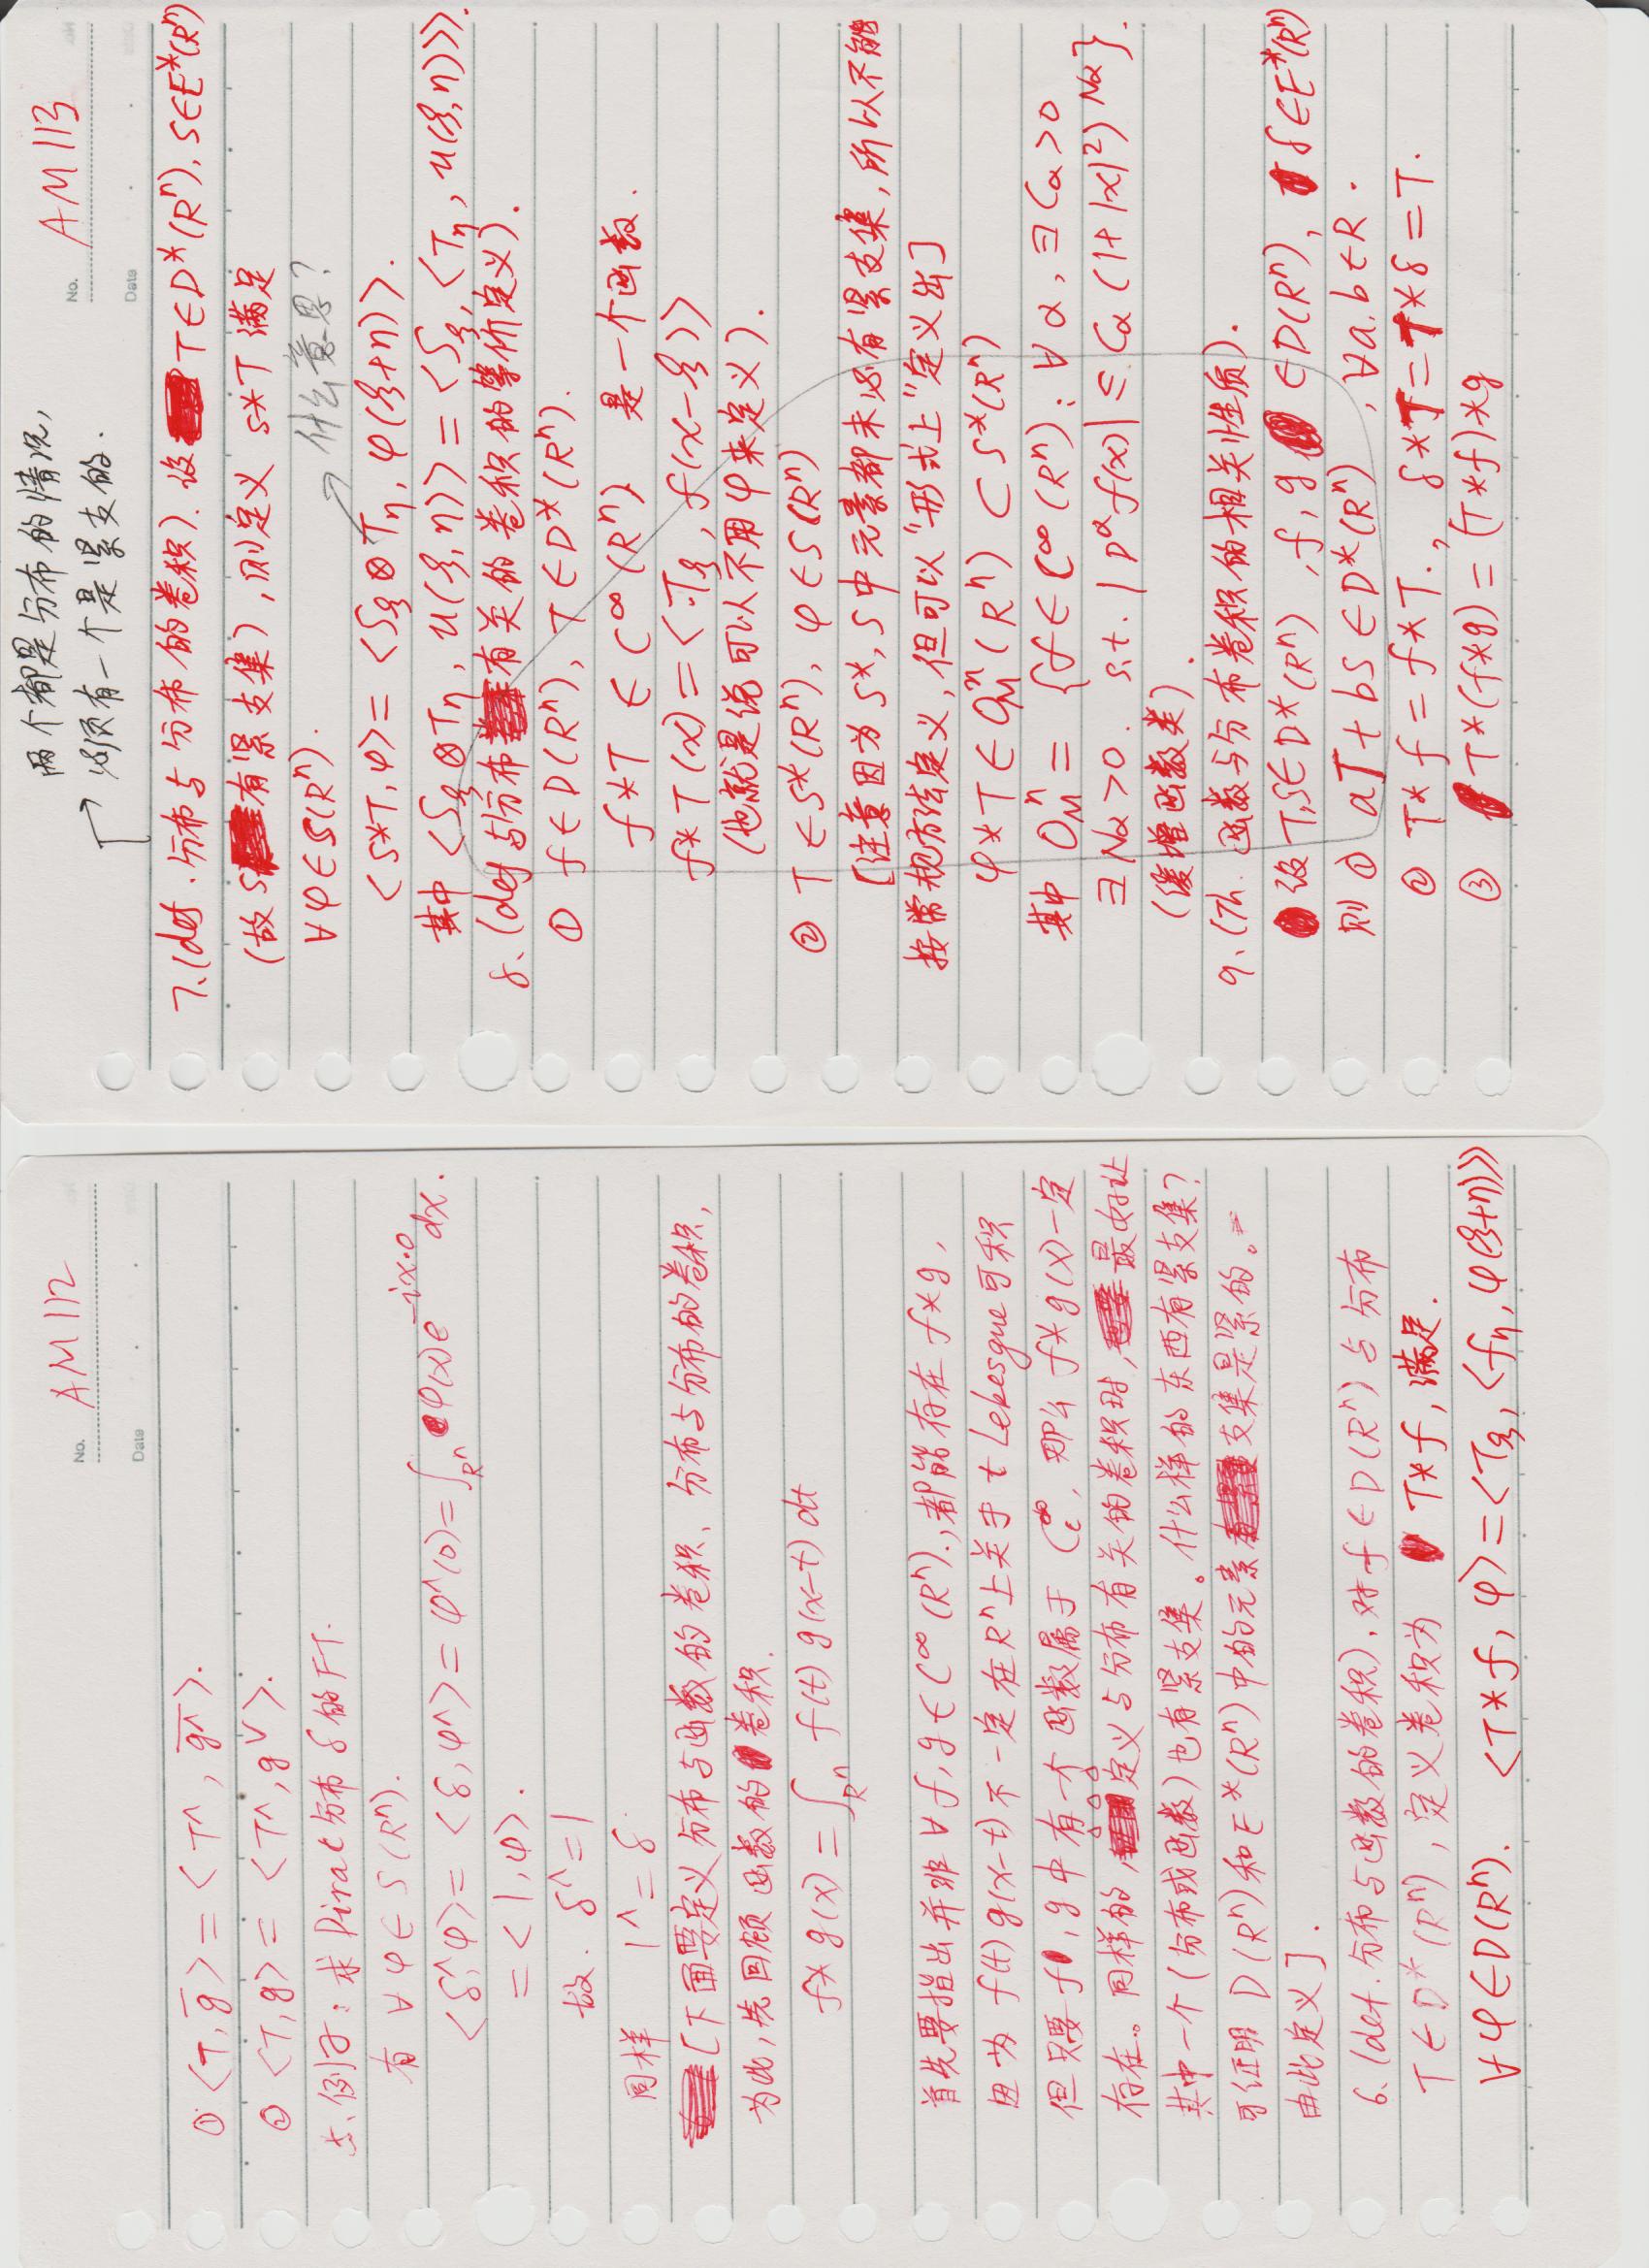 No. AM 112
Date
① ⟨T, g̅⟩ = ⟨T^, g^̅⟩.
② ⟨T, g⟩ = ⟨T^, g∨⟩.
5、例子: 求 Dirac分布 δ 的FT.
有 ∀ φ ∈ S(Rⁿ).
⟨δ^, φ⟩ = ⟨δ, φ^⟩ = φ^(0) = ∫_{Rⁿ} φ(x) e^{-ix·0} dx.
= ⟨1, φ⟩.
故. δ^ = 1
同样 1^ = δ
[下面要定义分布与函数的卷积、分布与分布的卷积,
为此, 先回顾函数的卷积.
f * g(x) = ∫_{Rⁿ} f(t) g(x-t) dt
首先要指出并非 ∀ f, g ∈ C^∞(Rⁿ), 都能存在 f*g,
因为 f(t) g(x-t) 不一定在Rⁿ上关于 t Lebesgue可积
但只要 f, g中有一个函数属于 C_c^∞, 那么 f*g(x)一定
存在。同样的, 定义与分布有关的卷积时, 最好让
其中一个(分布或函数)也有紧支集。什么样的东西有紧支集?
可证明 D(Rⁿ)和E*(Rⁿ)中的元素支集是紧的。
由此定义].
6、(def. 分布与函数的卷积). 对 f ∈ D(Rⁿ) 与分布
T ∈ D*(Rⁿ), 定义卷积为 T*f, 满足.
∀ φ ∈ D(Rⁿ). ⟨T*f, φ⟩ = ⟨T_ξ, ⟨f_η, φ(ξ+η)⟩⟩
两个都是分布的情况,
必须有一个是紧支的.
No. AM 113
Date
7、(def. 分布与分布的卷积). 设 T∈D*(Rⁿ), S∈E*(Rⁿ)
(故 S 有紧支集), 则定义 S*T 满足
∀ φ ∈ S(Rⁿ).
什么意思?
⟨S*T, φ⟩ = ⟨S_ξ ⊗ T_η, φ(ξ+η)⟩.
其中 ⟨S_ξ ⊗ T_η, u(ξ,η)⟩ = ⟨S_ξ, ⟨T_η, u(ξ,η)⟩⟩.
8、(def 与分布有关的卷积的等价定义).
① f ∈ D(Rⁿ), T ∈ D*(Rⁿ).
f*T ∈ C^∞(Rⁿ) 是一个函数.
f*T(x) = ⟨T_ξ, f(x-ξ)⟩
(也就是说可以不用φ来定义).
② T ∈ S*(Rⁿ), φ ∈ S(Rⁿ)
[注意因为 S*, S中元素都未必有紧支集, 所以不能
按常规方法定义, 但可以"形式上"定义出]
φ*T ∈ O_M^n(Rⁿ) ⊂ S*(Rⁿ)
其中 O_M^n = {f ∈ C^∞(Rⁿ): ∀ α, ∃ C_α > 0
∃ N_α > 0. s.t. |D^α f(x)| ≤ C_α (1+|x|²)^{N_α}}.
(缓增函数类).
9、(Th. 函数与分布卷积的相关性质).
设 T,S∈D*(Rⁿ), f, g ∈D(Rⁿ), δ∈E*(Rⁿ)
则 ① aT + bS ∈ D*(Rⁿ), ∀a, b ∈ R.
② T*f = f*T., δ*T = T*δ = T.
③ T*(f*g) = (T*f)*g